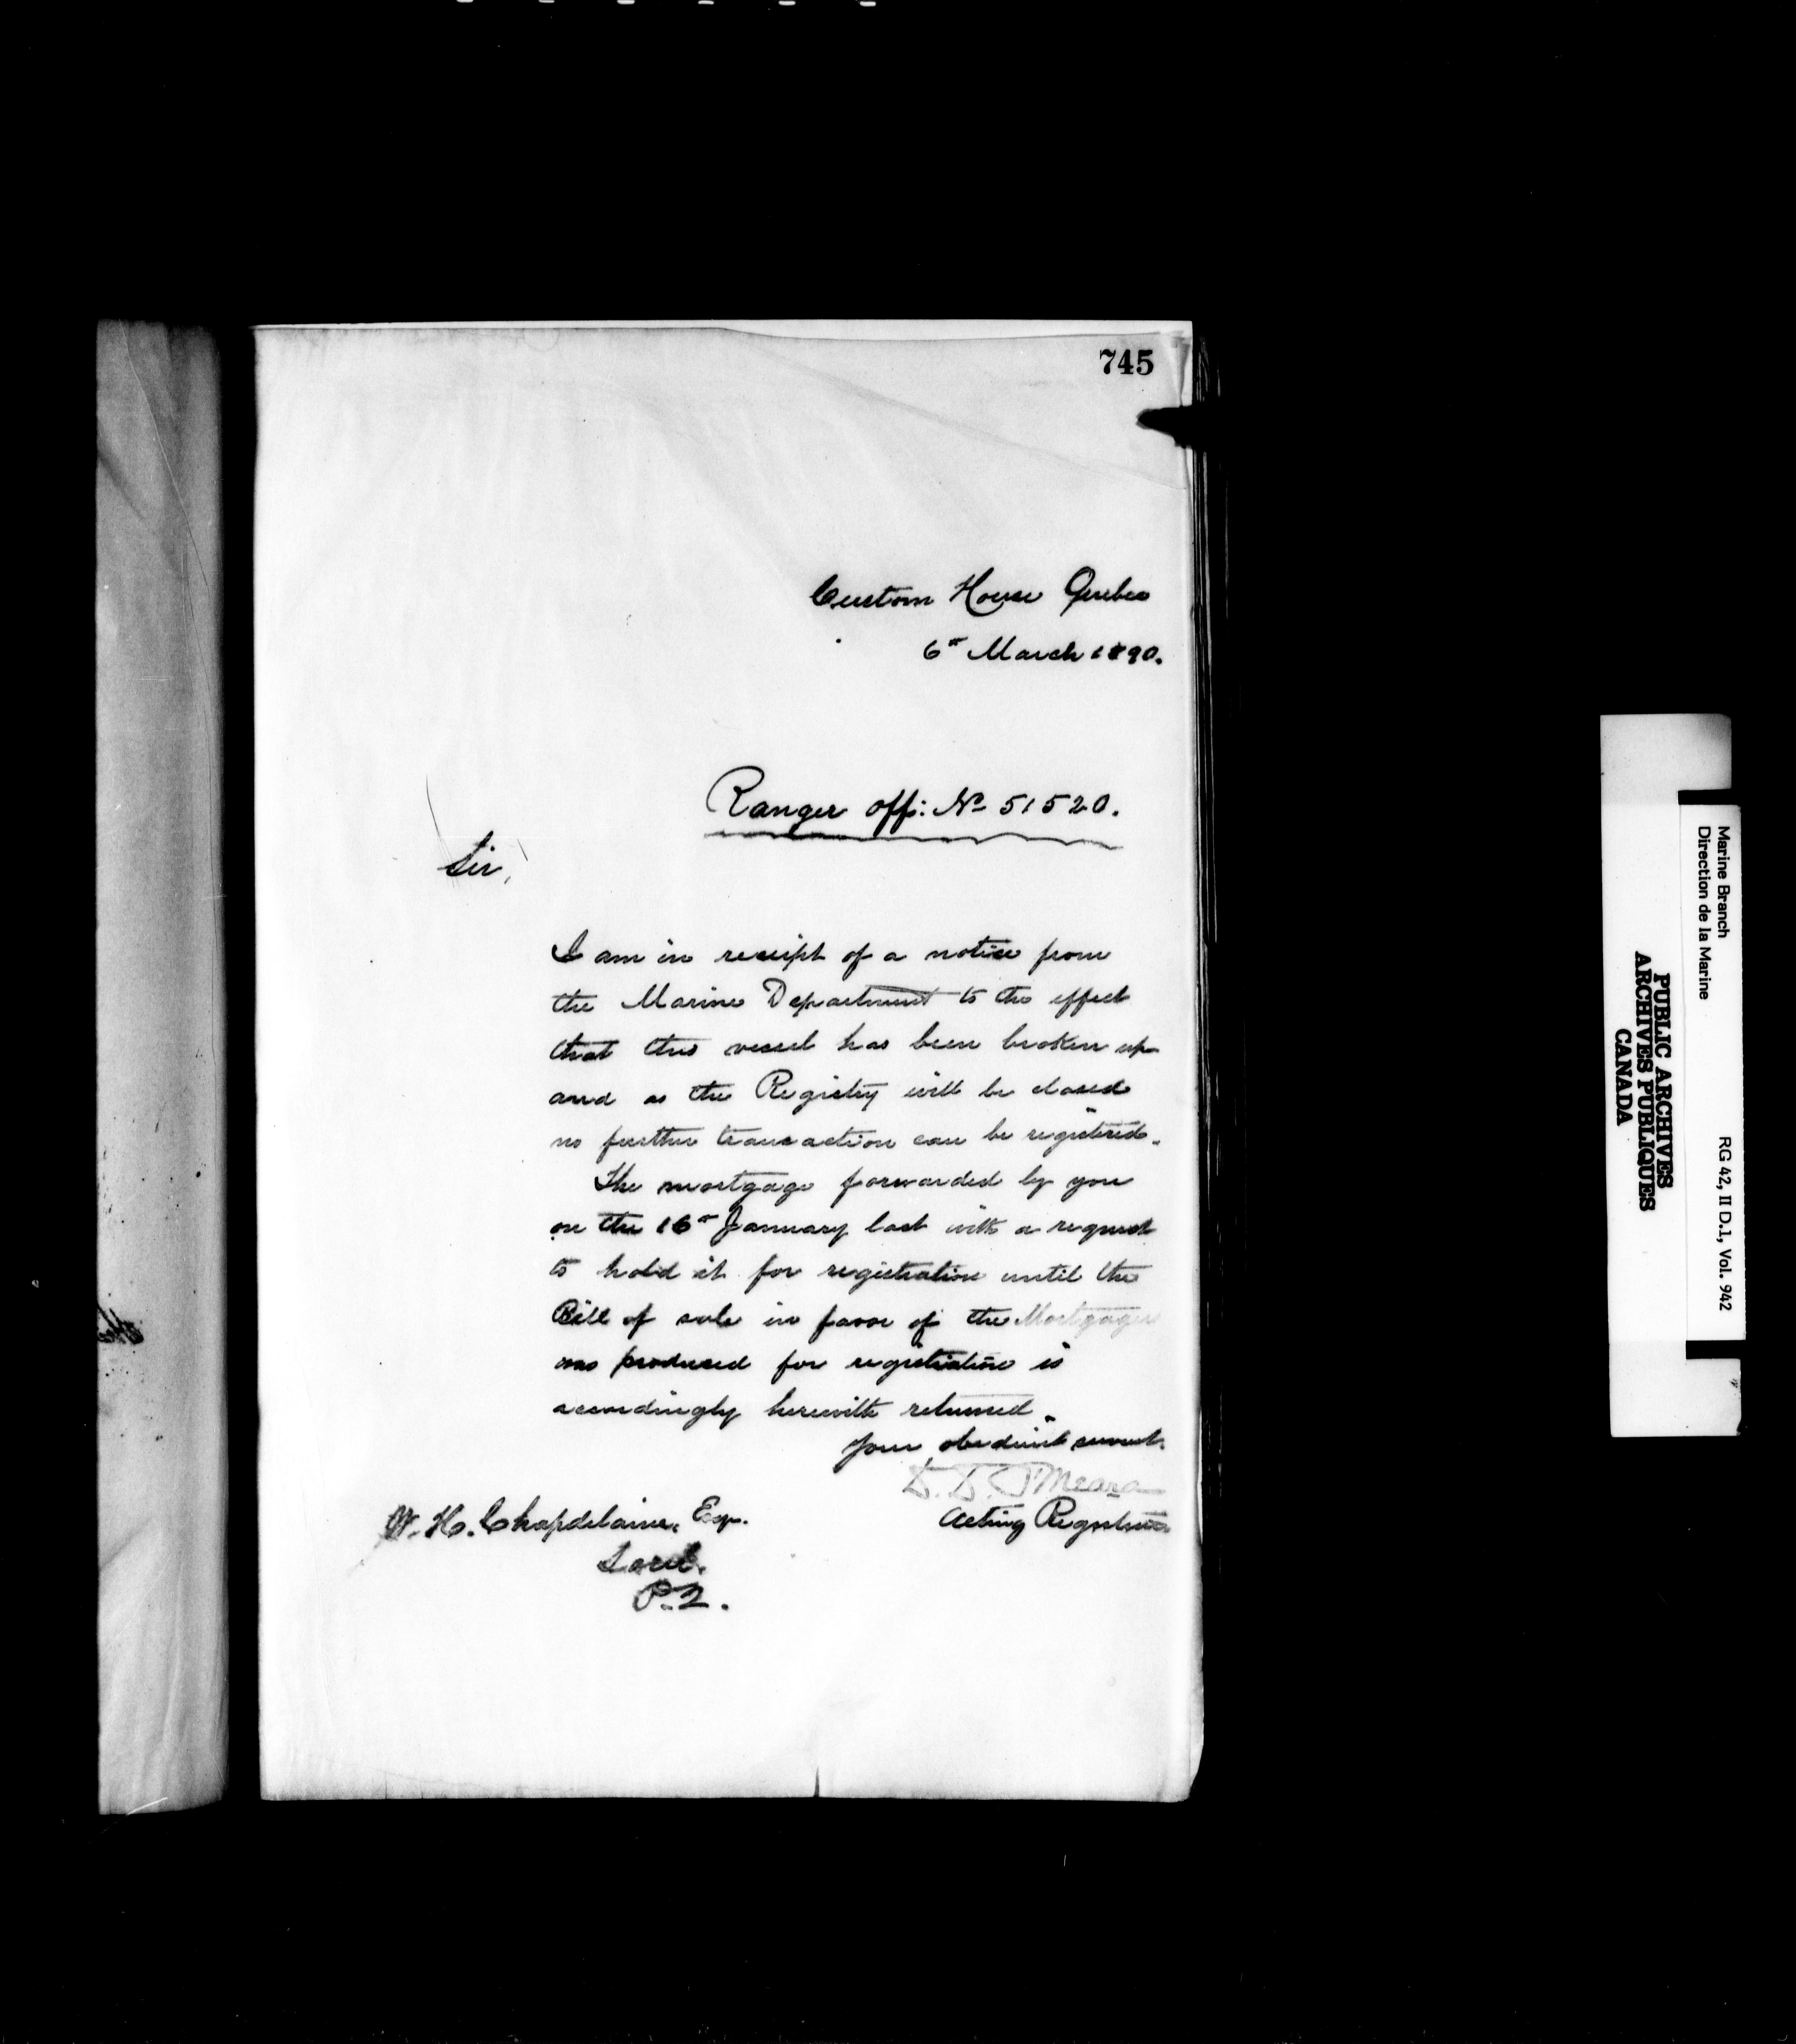 745
Custom House Quebec
6th March 1890.
Ranger off: No 51520.
Sir,
I am in receipt of a notice from
the Marine Department to the effect
that this vessel has been broken up
and as the Registry will be closed
no further transaction can be registered.
The mortgage forwarded by you
on the 16th January last with a request
to hold it for registration until the
Bill of sale in favor of the Mortgagor
was produced for registration is
accordingly herewith returned.
Your obedient servant.
O'Meara
Acting Registrar
W. H. Chapdelaine, Esq.
Sorel.
P.Q.
Marine Branch
Direction de la Marine
RG 42, II D.1, Vol. 942
PUBLIC ARCHIVES
ARCHIVES PUBLIQUES
CANADA